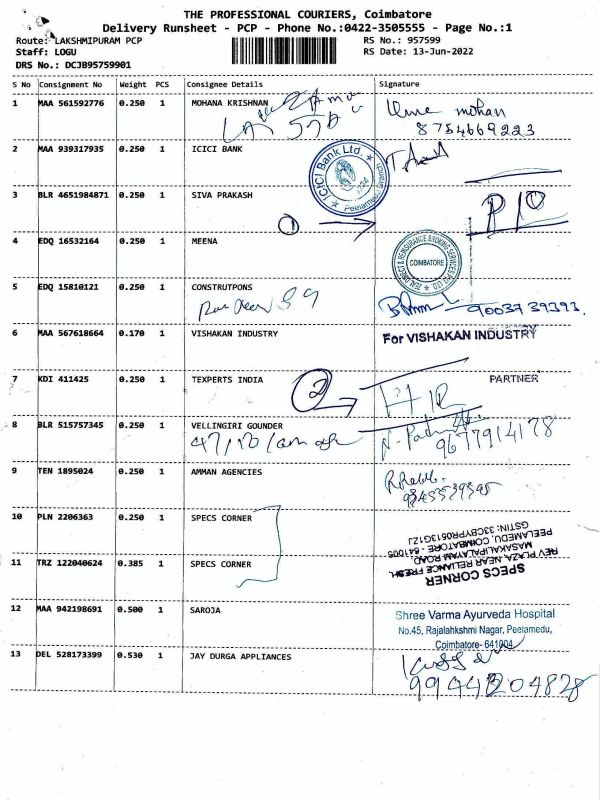 THE PROFESSIONAL COURIERS, Coimbatore
Delivery Runsheet - PCP - Phone No.:0422-3505555 - Page No.:1
Route: LAKSHMIPURAM PCP RS No.: 957599
Staff: LOGU RS Date: 13-Jun-2022
DRS No.: DCJB95759901
S No Consignment No Weight PCS Consignee Details Signature
1 MAA 561592776 0.250 1 MOHANA KRISHNAN
mohan
8754669223
2 MAA 939317935 0.250 1 ICICI BANK
ICICI Bank Ltd.
Peelamedu
3 BLR 4651984871 0.250 1 SIVA PRAKASH
1
4 EDQ 16532164 0.250 1 MEENA
COIMBATORE
5 EDQ 15810121 0.250 1 CONSTRUTPONS
9003739393
6 MAA 567618664 0.170 1 VISHAKAN INDUSTRY For VISHAKAN INDUSTRY
7 KDI 411425 0.250 1 TEXPERTS INDIA PARTNER
2
8 BLR 515757345 0.250 1 VELLINGIRI GOUNDER
9677914178
9 TEN 1895024 0.250 1 AMMAN AGENCIES
10 PLN 2206363 0.250 1 SPECS CORNER
11 TRZ 122040624 0.385 1 SPECS CORNER
SPECS CORNER
REV PLAZA, NEAR RELIANCE FRESH,
MASAKALIPALAYAM ROAD,
PEELAMEDU, COIMBATORE - 641005
GSTIN: 33CBYPR0513G1ZJ
12 MAA 942198691 0.500 1 SAROJA
Shree Varma Ayurveda Hospital
No.45, Rajalahkshmi Nagar, Peelamedu,
Coimbatore- 641004
13 DEL 528173399 0.530 1 JAY DURGA APPLIANCES